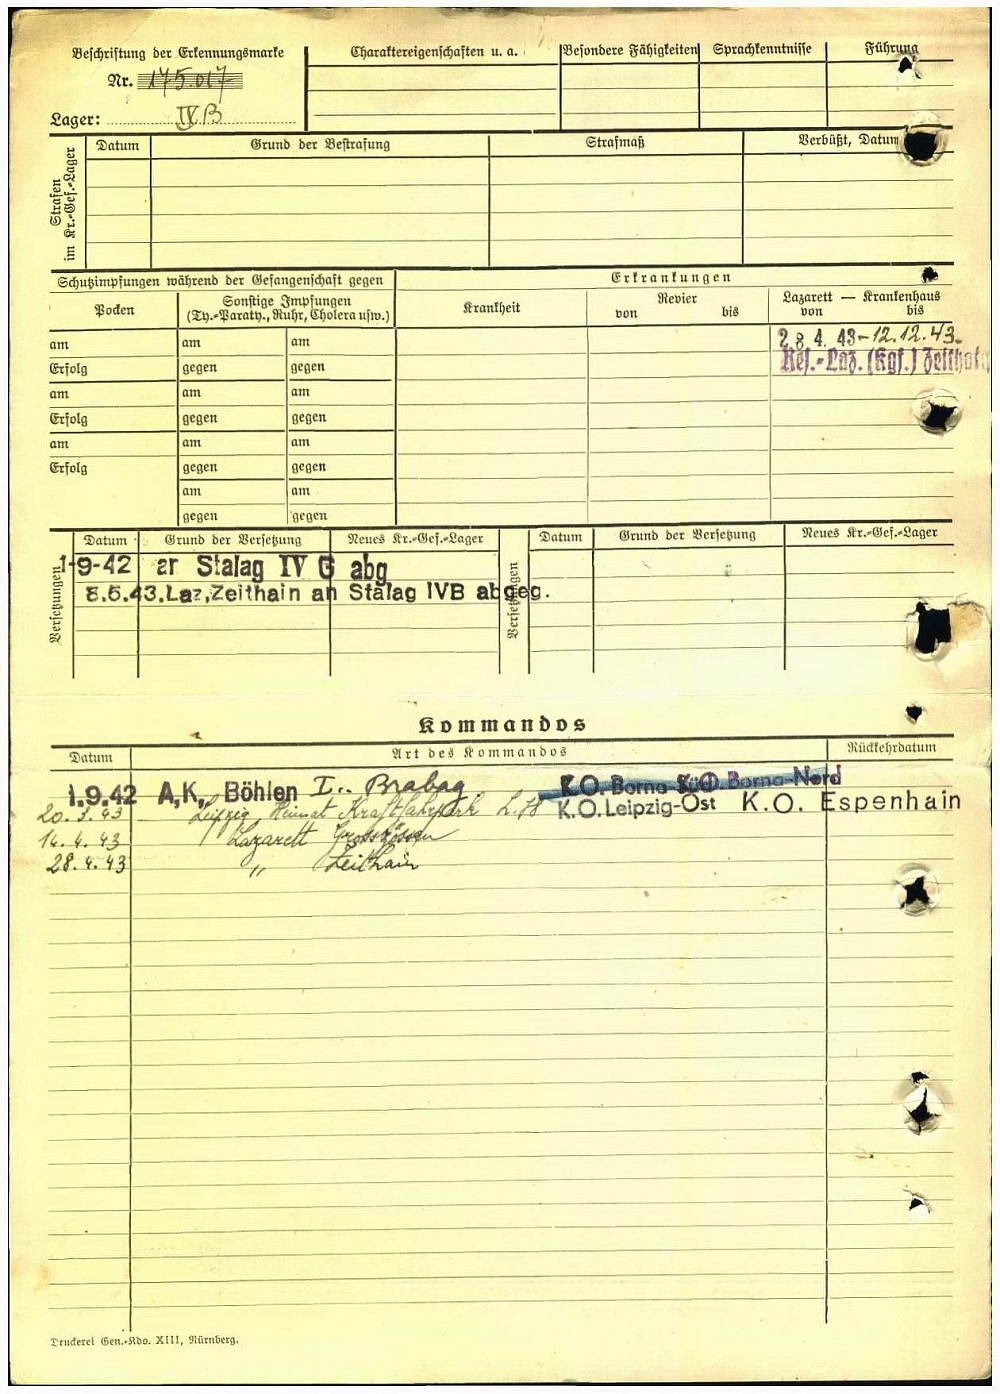 Beschriftung der Erkennungsmarke
Nr. 175.017
Lager: IVB
Charaktereigenschaften u. a.
Besondere Fähigkeiten
Sprachkenntnisse
Führung
Strafen
im Kr.-Gef.-Lager
Datum
Grund der Bestrafung
Strafmaß
Verbüßt, Datum
Schutzimpfungen während der Gefangenschaft gegen
Erkrankungen
Pocken
Sonstige Impfungen
(Ty.-Paraty., Ruhr, Cholera usw.)
Krankheit
Revier
von bis
Lazarett — Krankenhaus
von bis
am am am
28 4. 43-12.12.43.
Erfolg gegen gegen
Res.-Laz. (Kgf.) Zeithain
am am am
Erfolg gegen gegen
am am am
Erfolg gegen gegen
am am
gegen gegen
Versetzungen
Datum Grund der Versetzung Neues Kr.-Gef.-Lager
Versetzungen
Datum Grund der Versetzung Neues Kr.-Gef.-Lager
1-9-42 er Stalag IV G abg
8.5.43.Laz,Zeithain an Stalag IVB abgeg.
Kommandos
Datum Art des Kommandos Rückkehrdatum
1.9.42 A,K,, Böhlen I.. Brabag K.O. Borna K.O. Borna-Nord
20.3.43 Leipzig, Heimat Kraftfahrpark K.O.Leipzig-Ost K.O. Espenhain
14.4.43 Lazarett Grosszössen
28.4.43 " Zeithain
Druckerei Gen.-Kdo. XIII, Nürnberg.